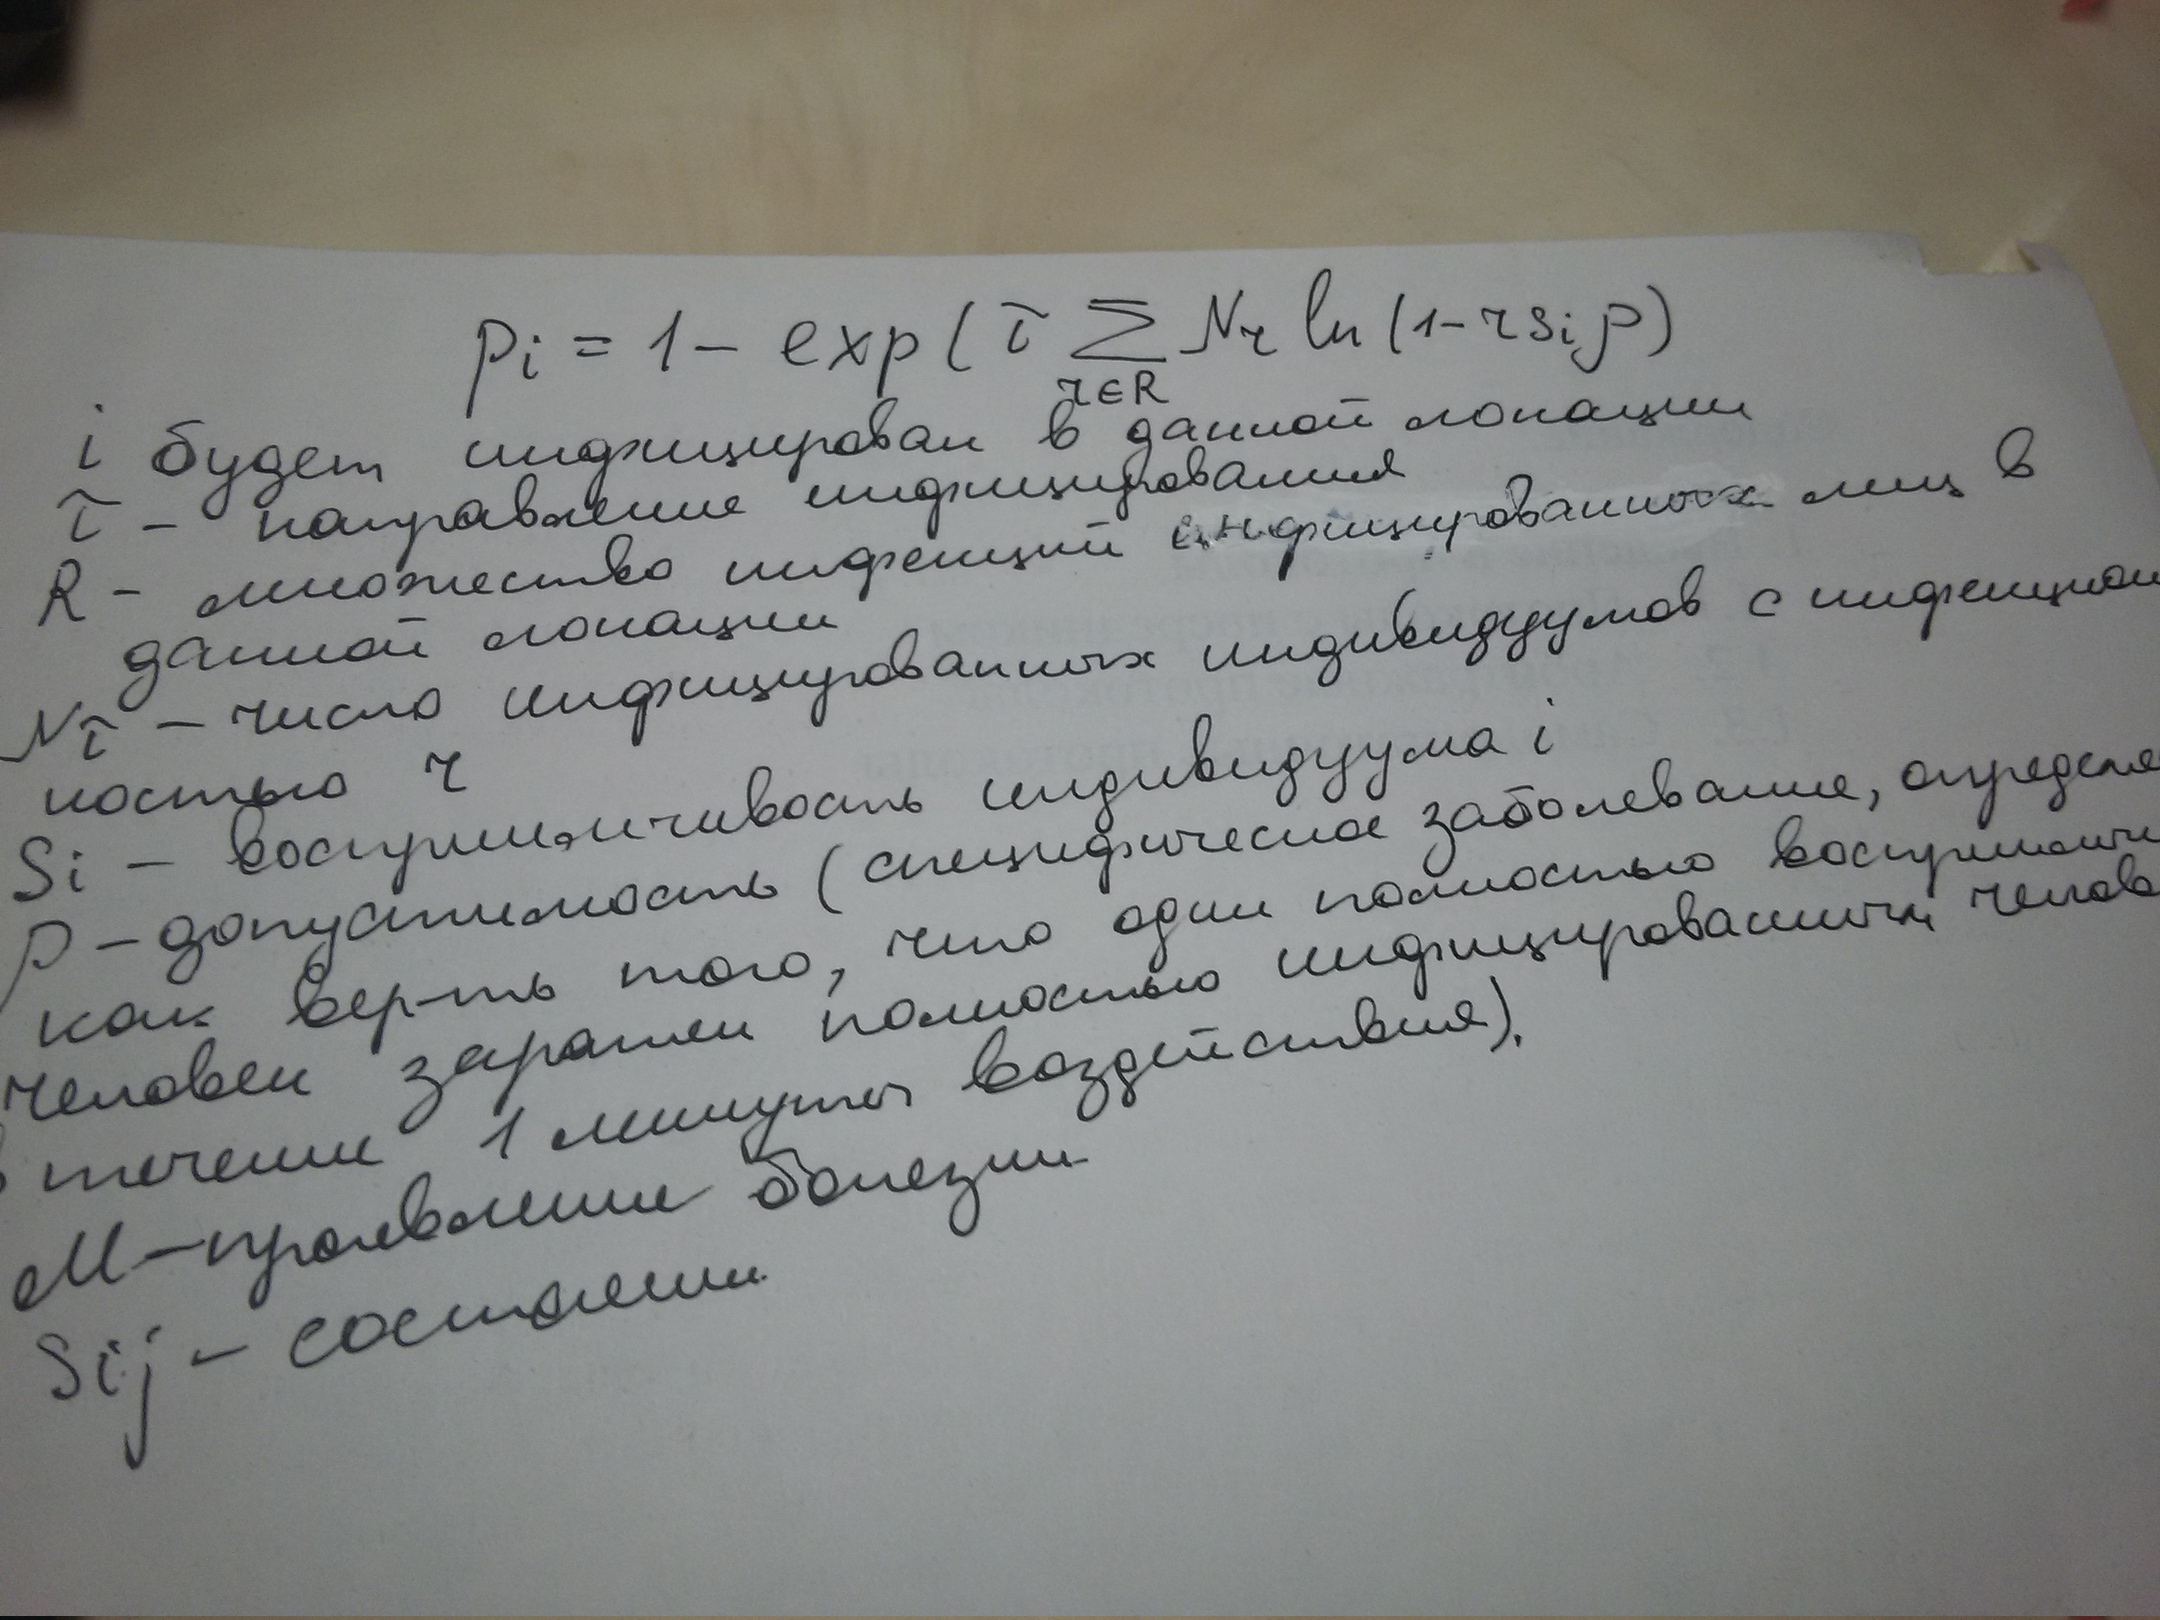 pi = 1 - exp ( τ Σ Nr ln (1 - r si ρ)
r ∈ R
i будет инфицирован в данной локации
τ - направление инфицирования
R - множество инфекций инфицированных лиц в
данной локации
Nτ - число инфицированных индивидуумов с инфекцион
ностью r
Si - восприимчивость индивидуума i
ρ - допустимость (специфическое заболевание, определя
как вер-ть того, что один полностью восприимчи
человек заражен полностью инфицированным челове
в течении 1 минуты воздействия).
M - проявление болезни
Sij - состояние